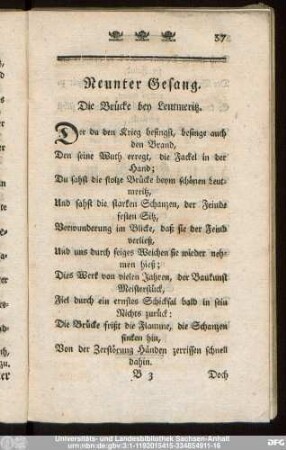 37
Neunter Gesang.
Die Brücke bey Leutmeritz.
Der du den Krieg besingst, besinge auch
den Brand,
Den seine Wuth erregt, die Fackel in der
Hand;
Du sahst die stolze Brücke beym schönen Leut-
meritz,
Und sahst die starken Schanzen, der Feinde
festen Sitz,
Verwunderung im Blicke, daß sie der Feind
verließ,
Und uns durch feiges Weichen sie wieder neh-
men hieß;
Dies Werk von vielen Jahren, der Baukunst
Meisterstück,
Fiel durch ein ernstes Schicksal bald in sein
Nichts zurück:
Die Brücke frißt die Flamme, die Schanzen
sinken hin,
Von der Zerstörung Händen zerrissen schnell
dahin.
B 3 Doch
Universitäts- und Landesbibliothek Sachsen-Anhalt
urn:nbn:de:gbv:3:1-1192015415-334654911-16
DFG